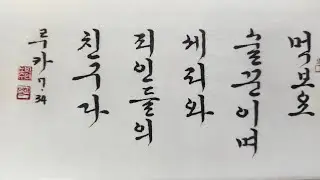 먹보요
술꾼이며
세리와
죄인들의
친구라
루카 7·34